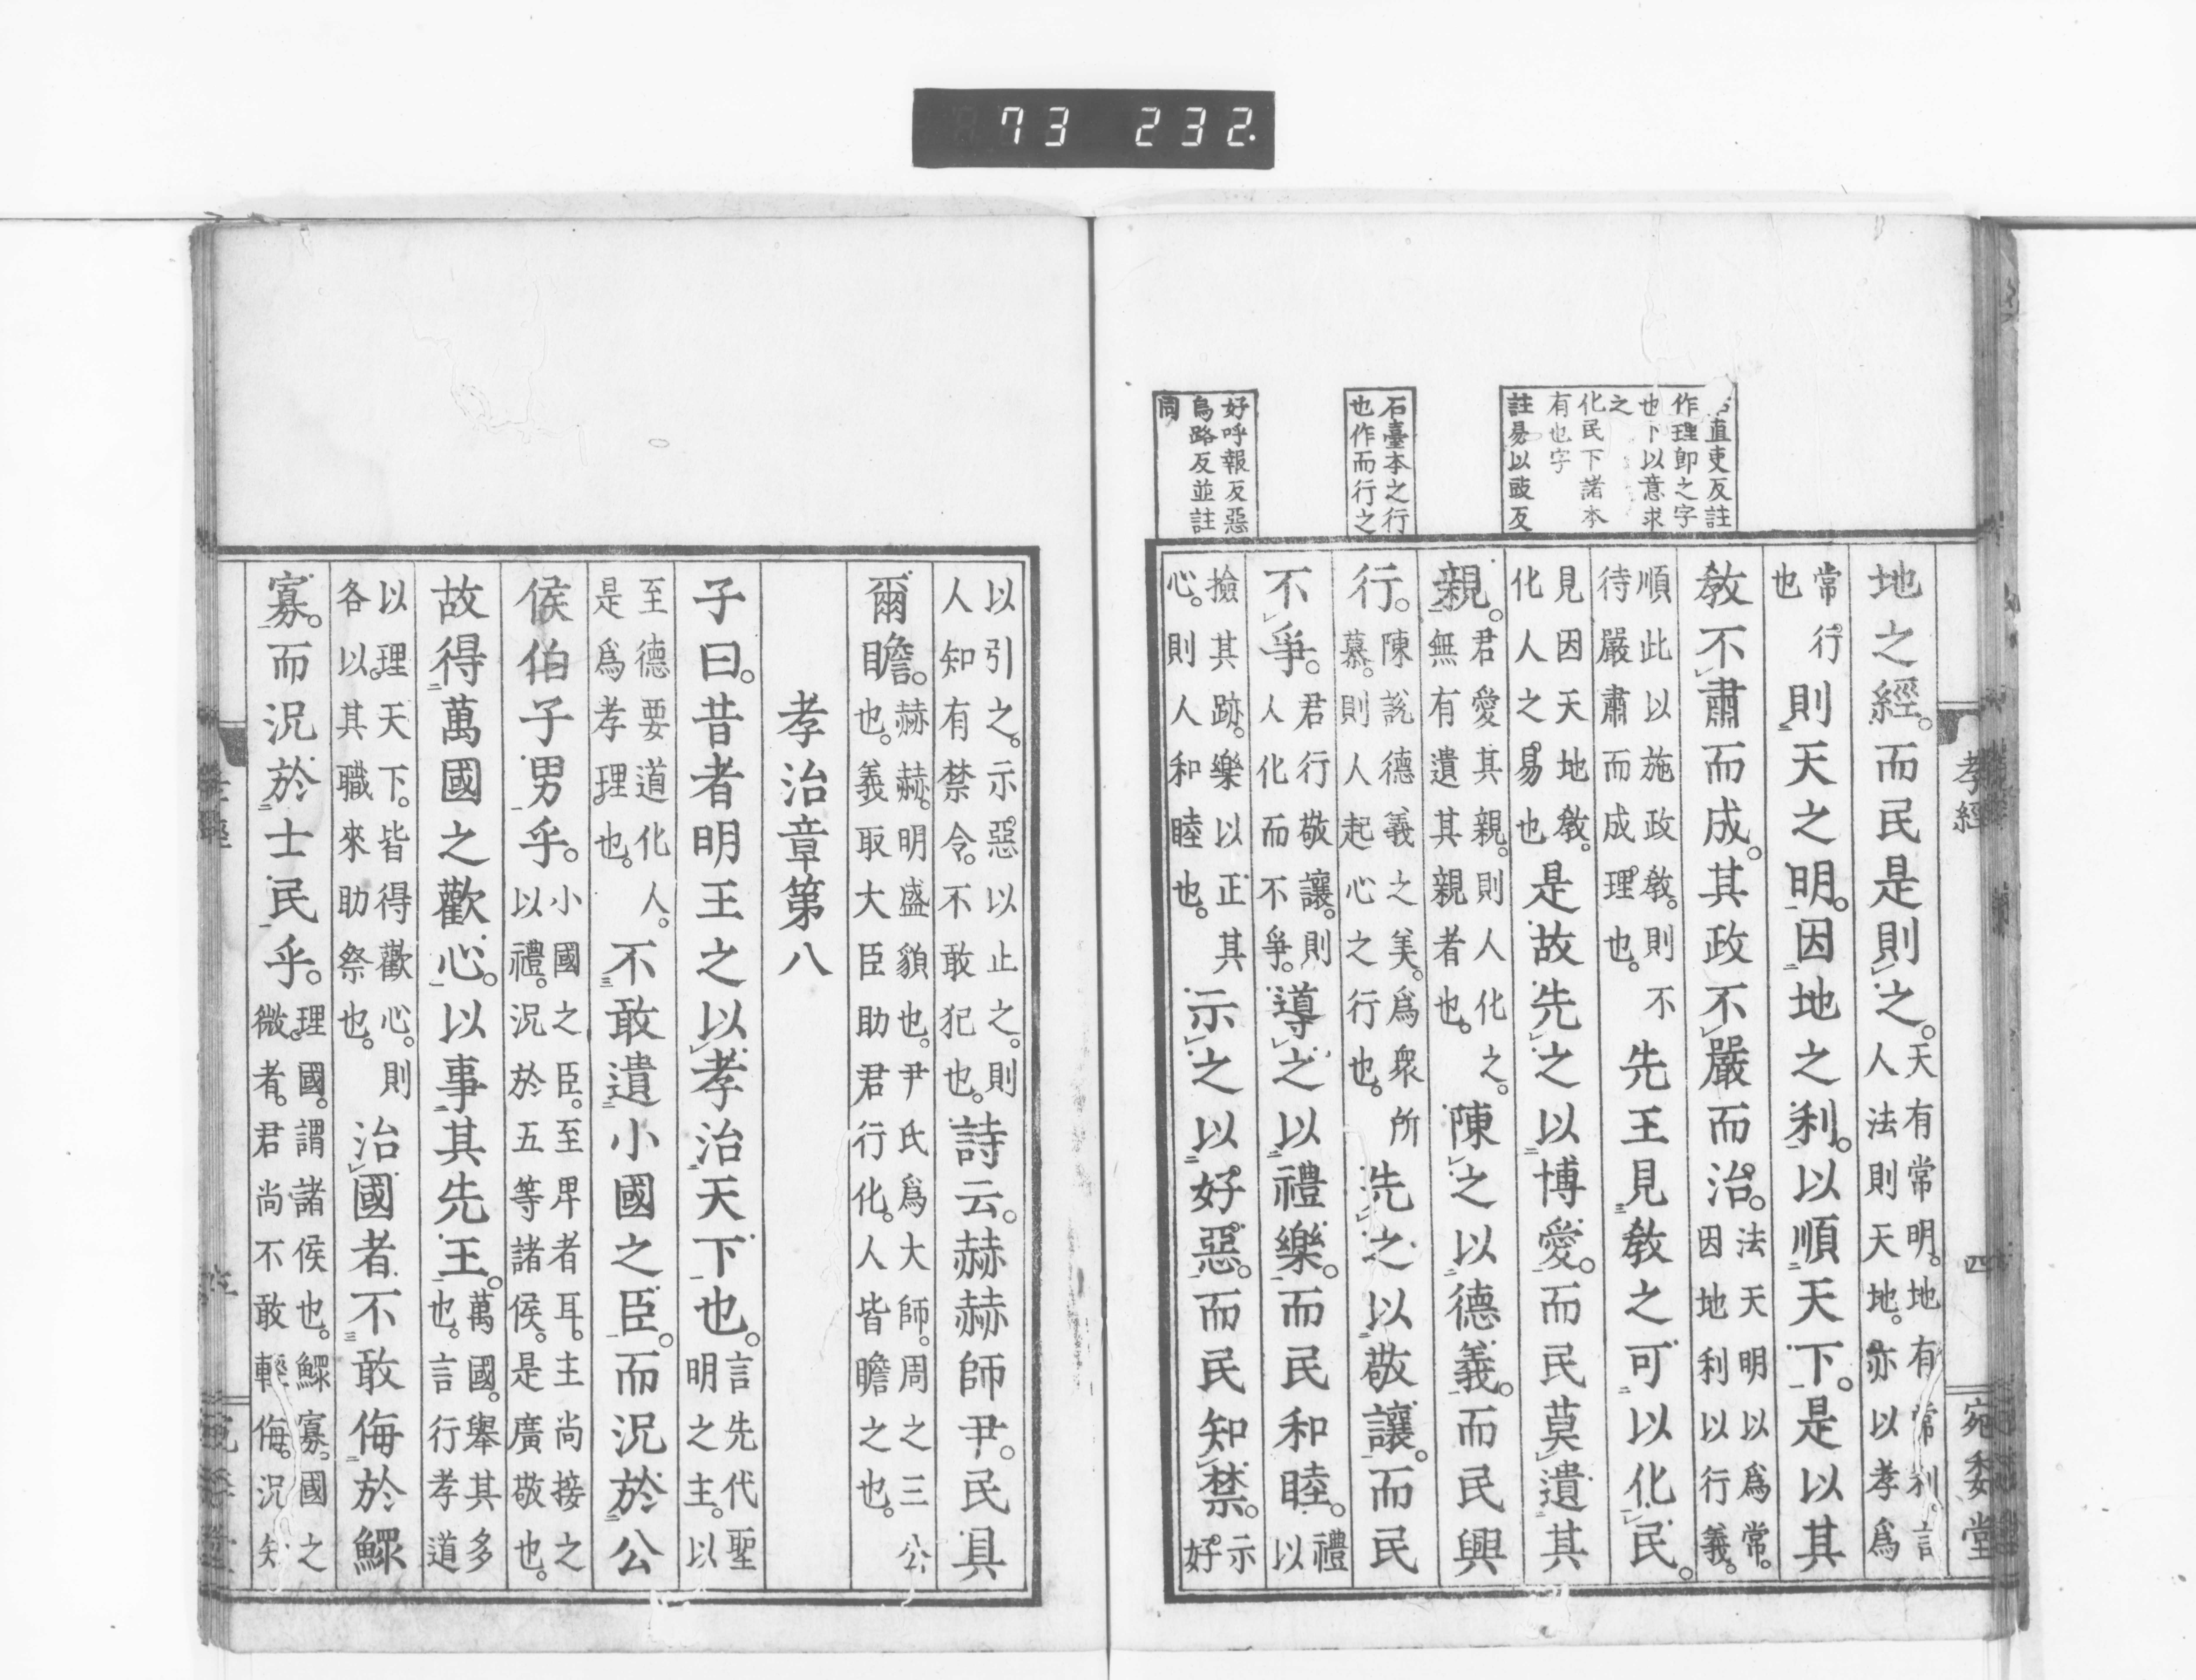 73 232.
直吏反註
作理即之字
也下以意求
之
化民下諸本
有也字
註易以豉反
石臺本之行
也作而行之
好呼報反惡
烏路反並註
同
孝經
四
宛委堂
地之經。而民是則之。天有常明。地有常利。言人法則天地。亦以孝爲
常行也則天之明。因地之利。以順天下。是以其
敎不肅而成。其政不嚴而治。法天明以爲常。因地利以行義。
順此以施政敎。則不待嚴肅而成理也。先王見敎之可以化民。
見因天地敎。化人之易也是故先之以博愛。而民莫遺其
親。君愛其親。則人化之。無有遺其親者也。陳之以德義。而民興
行。陳說德義之美。爲衆所慕。則人起心之行也。先之以敬讓。而民
不爭。君行敬讓。則人化而不爭。導之以禮樂。而民和睦。禮以
撿其跡。樂以正其心。則人和睦也。示之以好惡。而民知禁。示好
以引之。示惡以止之。則人知有禁令。不敢犯也。詩云。赫赫師尹。民具
爾瞻。赫赫。明盛貌也。尹氏爲大師。周之三公也。義取大臣助君行化。人皆瞻之也。
孝治章第八
子曰。昔者明王之以孝治天下也。言先代聖明之主。以
至德要道化人。是爲孝理也。不敢遺小國之臣。而況於公
侯伯子男乎。小國之臣。至卑者耳。主尚接之以禮。況於五等諸侯。是廣敬也。
故得萬國之歡心。以事其先王。萬國。舉其多也。言行孝道
以理天下。皆得歡心。則各以其職來助祭也。治國者不敢侮於鰥
寡。而況於士民乎。理國。謂諸侯也。鰥寡。國之微者。君尚不敢輕侮。況知